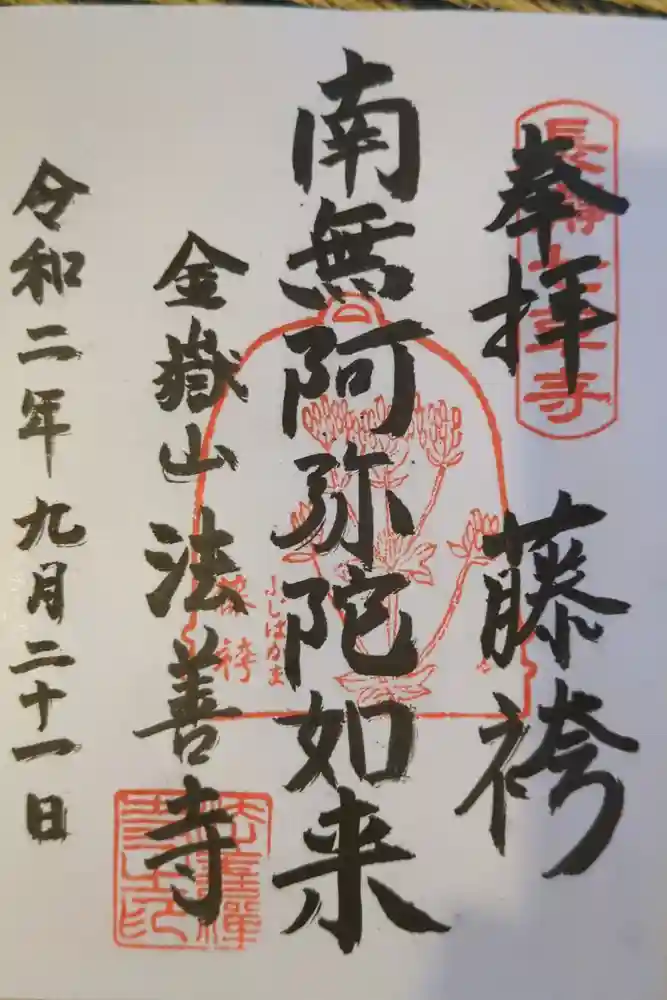 奉拝　藤袴
南無阿弥陀如来
ふじばかま
藤袴
金嶽山 法善寺
令和二年九月二十一日